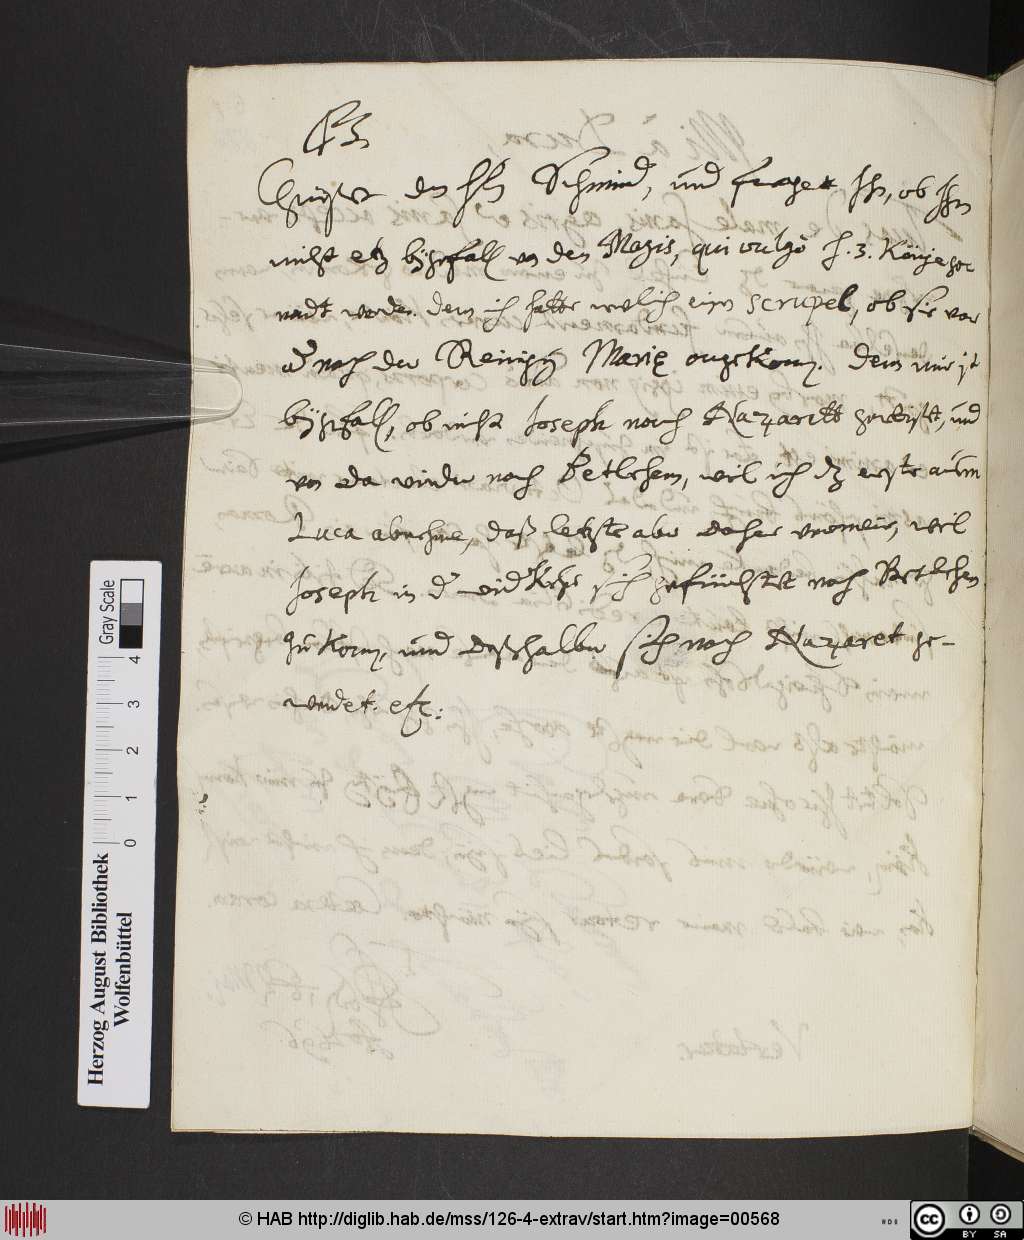 PS
Grüsset den H. Schmid, und fraget Ihn, ob Ihm
nicht etz byhgefall von den Magis, qui vulgò h. 3. Könige ge-
nandt werden. dem ich hatte neulich ein scrupel, ob sie vor
oder nach der Reinigung Marię angekomen. denn mir ist
byhgefall, ob nicht Joseph nach Nazareth gereiset, und
von da wieder nach Betlehem, weil ich dz erste außm
Luca abnehme, daß letzste aber daher vermeine, weil
Joseph in der wiederKehr sich gefürchtet nach Betlehem
zu Komen, und deßhalben sich nach Nazaret ge-
wendet. etc:
Gray Scale
0 1 2 3 4
Herzog August Bibliothek
Wolfenbüttel
© HAB http://diglib.hab.de/mss/126-4-extrav/start.htm?image=00568
cc BY SA